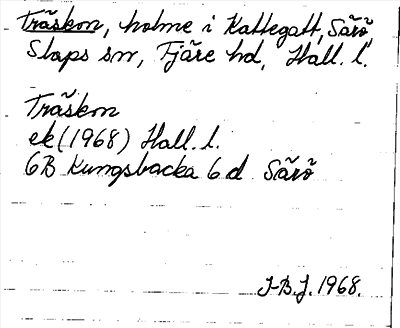 Träskon, holme i Kattegatt, Särö,
Släps sn, Fjäre hd, Hall. l.
Träskon
ek (1968) Hall. l.
6B Kungsbacka 6 d Särö
J-B.J. 1968.